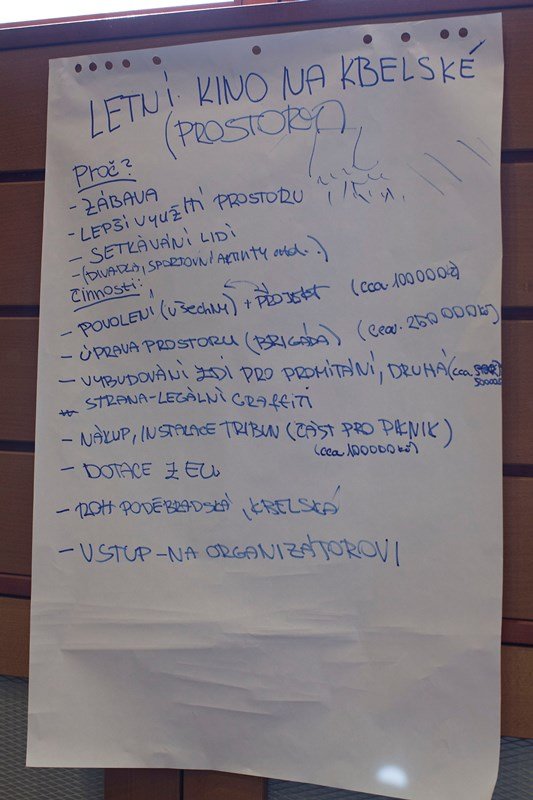 LETNÍ KINO NA KBELSKÉ
(PROSTORY)
Proč?
- ZÁBAVA
- LEPŠÍ VYUŽITÍ PROSTORU
- SETKÁVÁNÍ LIDÍ
- (DIVADLA, SPORTOVNÍ AKTIVITY atd.)
Činnosti:
- POVOLENÍ (všechna) + PROJEKT (cca. 100000kč)
- ÚPRAVA PROSTORU (BRIGÁDA) (cca. 250 000Kč)
- VYBUDOVÁNÍ ZDI PRO PROMÍTÁNÍ, DRUHÁ (cca.
STRANA-LEGÁLNÍ GRAFFITI
- NÁKUP, INSTALACE TRIBUN (ČÁST PRO PIKNIK)
(cca. 100000kč)
- DOTACE Z EU
- ROH PODĚBRADSKÁ, KBELSKÁ
- VSTUP-NA ORGANIZÁTOROVI